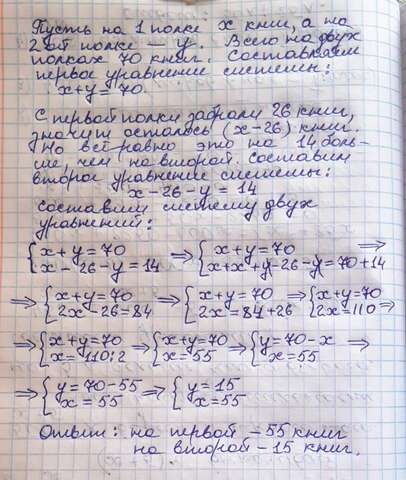 Пусть на 1 полке x книг, а на
2ой полке — y. Всего на двух
полках 70 книг. Составляем
первое уравнение системы:
x+y=70.
С первой полки забрали 26 книг,
значит осталось (x-26) книг.
Но всё равно это на 14 боль-
ше, чем на второй. Составим
второе уравнение системы:
x-26-y=14
Составим систему двух
уравнений:
{x+y=70 {x-26-y=14 ⇒ {x+y=70 {x+x+y-26-y=70+14 ⇒
⇒ {x+y=70 {2x-26=84 ⇒ {x+y=70 {2x=84+26 ⇒ {x+y=70 {2x=110 ⇒
⇒ {x+y=70 {x=110:2 ⇒ {x+y=70 {x=55 ⇒ {y=70-x {x=55 ⇒
⇒ {y=70-55 {x=55 ⇒ {y=15 {x=55
Ответ: на первой -55 книг
на второй -15 книг.